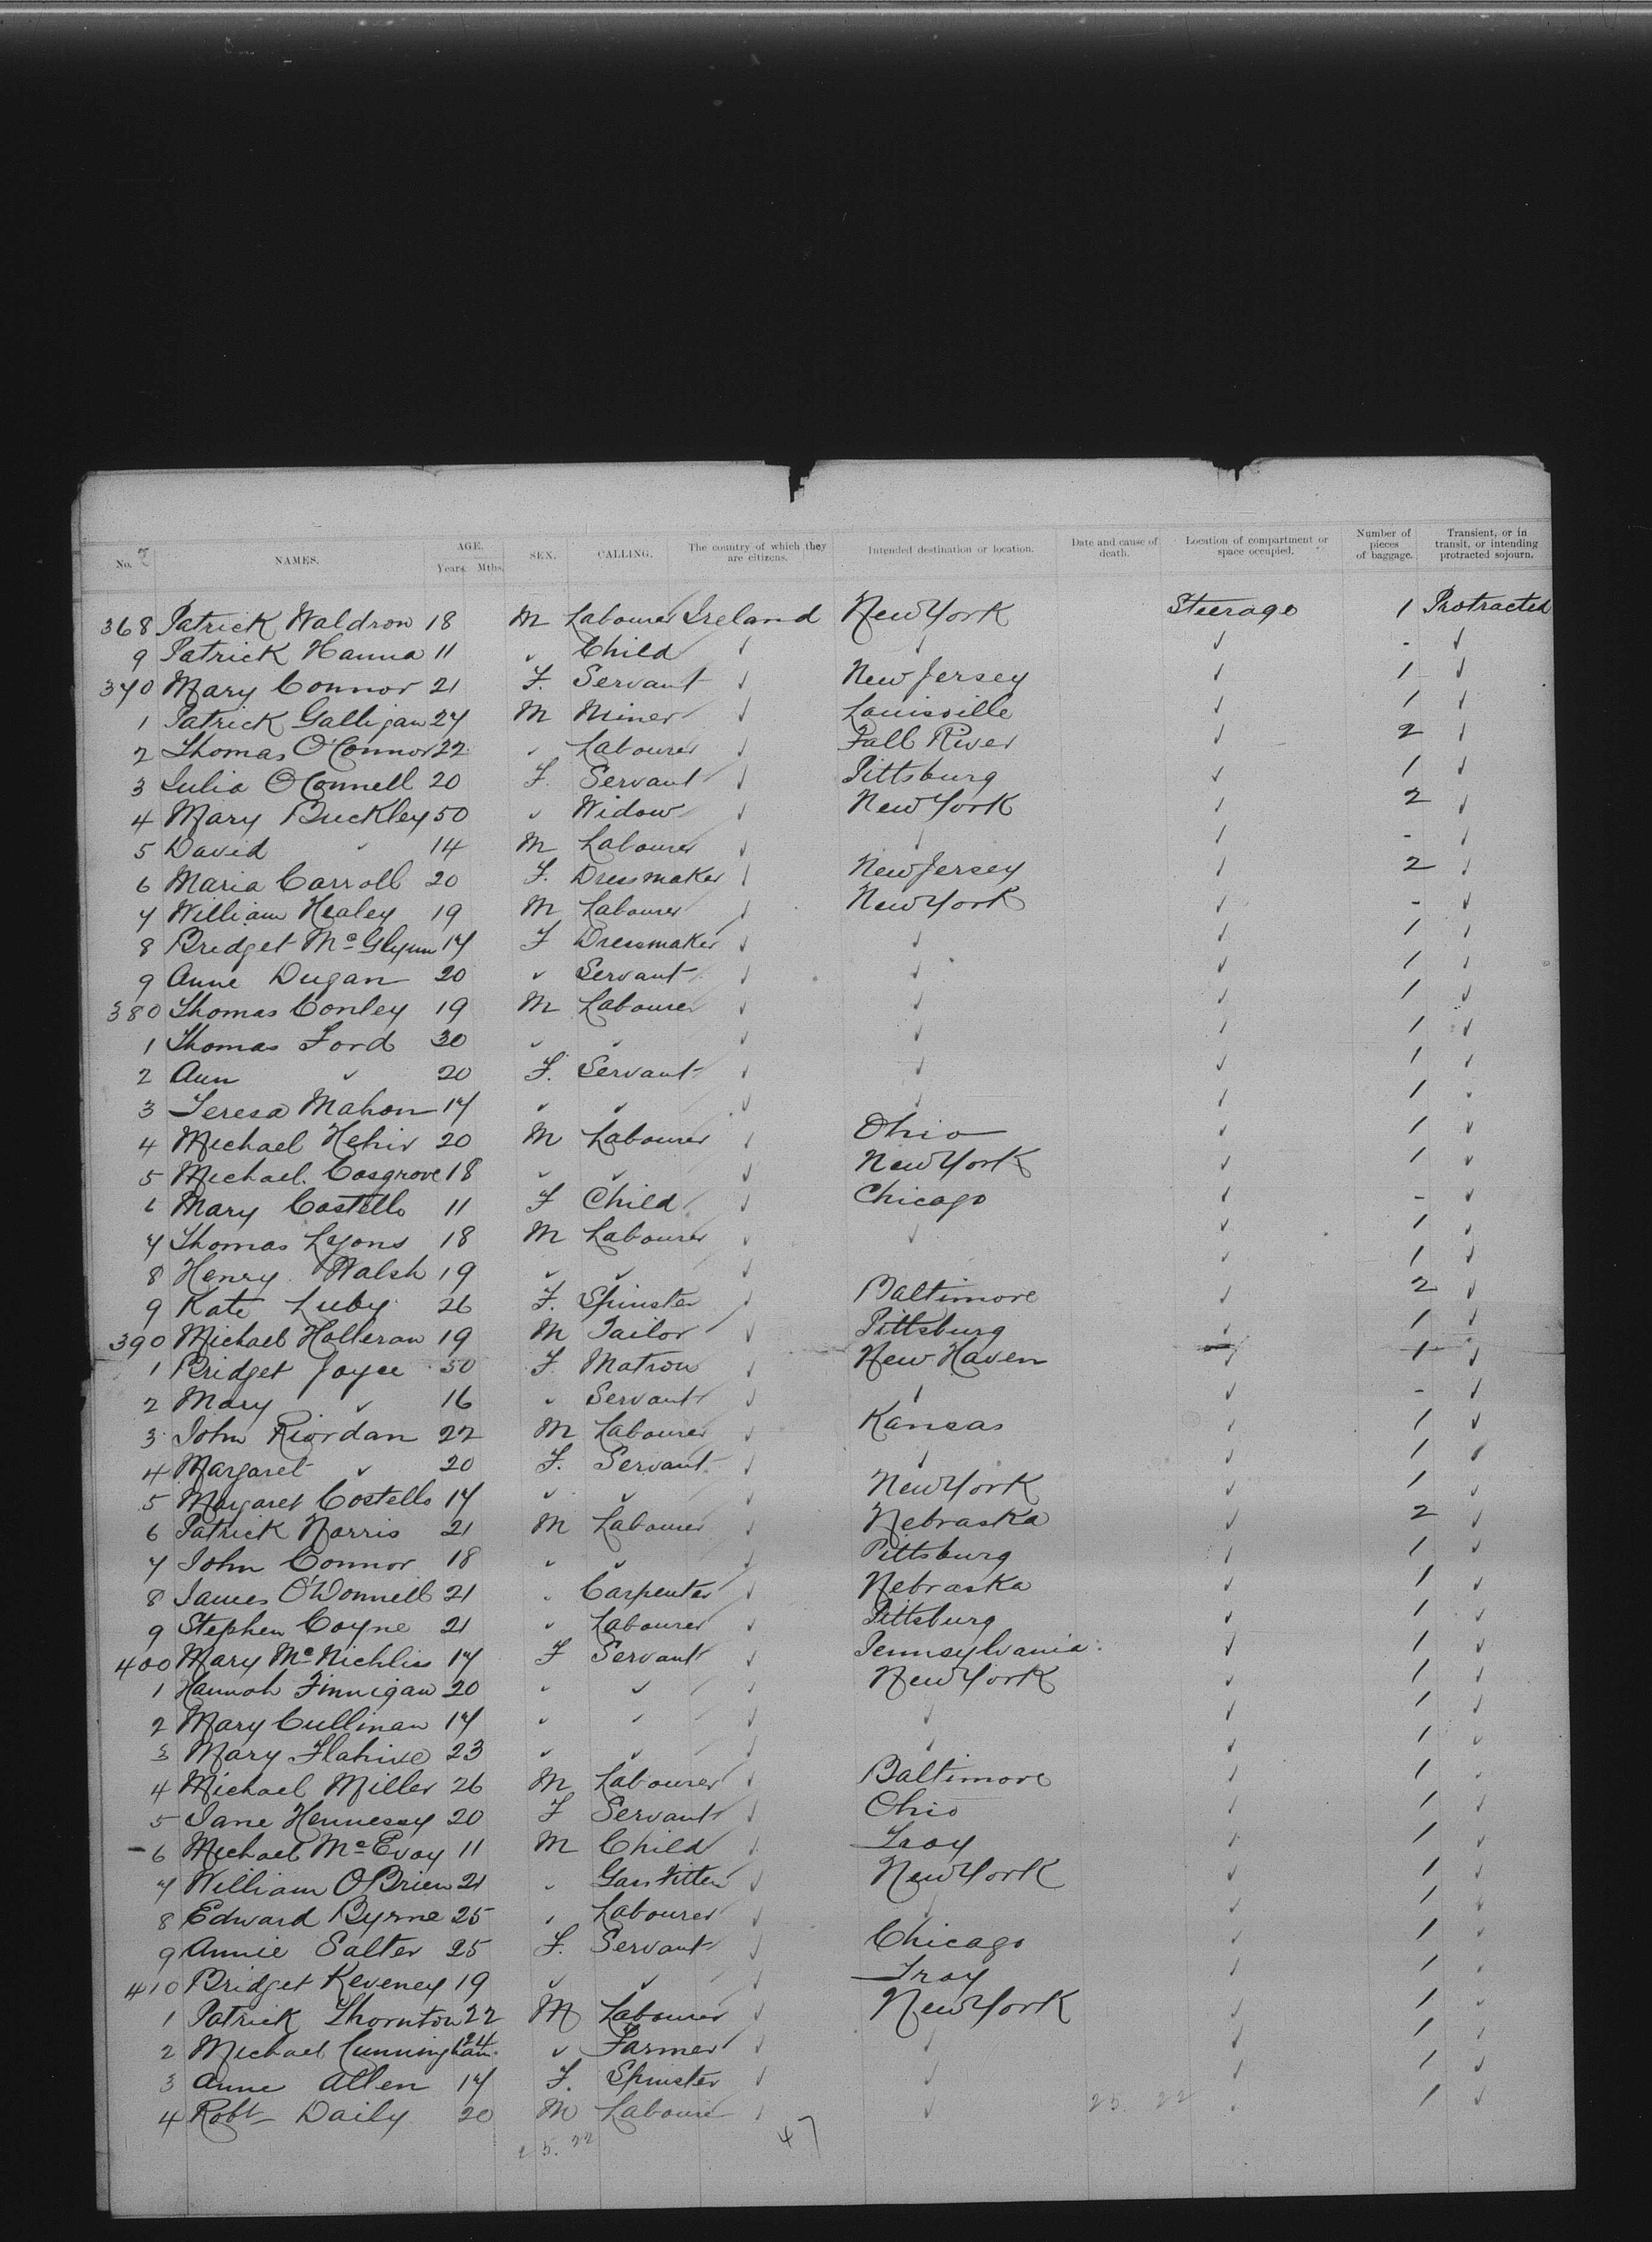 No. NAMES. AGE. Years. Mths. SEX. CALLING. The country of which they are citizens. Intended destination or location. Date and cause of death. Location of compartment or space occupied. Number of pieces of baggage. Transient, or in transit, or intending protracted sojourn.
368 Patrick Waldron 18 M Labourer Ireland New York Steerage 1 Protracted
9 Patrick Hanna 11 ✓ Child ✓ ✓ ✓ - ✓
370 Mary Connor 21 F. Servant ✓ New Jersey ✓ 1 ✓
1 Patrick Galligan 27 M Miner ✓ Louisville ✓ 1 ✓
2 Thomas O'Connor 22 ✓ Labourer ✓ Fall River ✓ 2 ✓
3 Julia O'Connell 20 F. Servant ✓ Pittsburg ✓ 1 ✓
4 Mary Buckley 50 ✓ Widow ✓ New York ✓ 2 ✓
5 David ✓ 14 M Labourer ✓ ✓ ✓ - ✓
6 Maria Carroll 20 F. Dressmaker ✓ New Jersey ✓ 2 ✓
7 William Healey 19 M Labourer ✓ New York ✓ - ✓
8 Bridget McGlynn 17 F Dressmaker ✓ ✓ ✓ 1 ✓
9 Anne Dugan 20 ✓ Servant ✓ ✓ ✓ 1 ✓
380 Thomas Conley 19 M Labourer ✓ ✓ ✓ 1 ✓
1 Thomas Ford 30 ✓ ✓ ✓ ✓ ✓ 1 ✓
2 Ann ✓ 20 F. Servant ✓ ✓ ✓ 1 ✓
3 Teresa Mahon 17 ✓ ✓ ✓ ✓ ✓ 1 ✓
4 Michael Hehir 20 M Labourer ✓ Ohio ✓ 1 ✓
5 Michael. Cosgrove 18 ✓ ✓ ✓ New York ✓ 1 ✓
6 Mary Costello 11 F Child ✓ Chicago ✓ - ✓
7 Thomas Lyons 18 M Labourer ✓ ✓ ✓ 1 ✓
8 Henry Walsh 19 ✓ ✓ ✓ ✓ 1 ✓
9 Kate Luby 26 F. Spinster ✓ Baltimore ✓ 2 ✓
390 Michael Holleran 19 M Tailor ✓ Pittsburg ✓ 1 ✓
1 Bridget Joyce 50 F. Matron ✓ New Haven ✓ 1 ✓
2 Mary ✓ 16 ✓ Servant ✓ ✓ ✓ - ✓
3 John Riordan 22 M Labourer ✓ Kansas ✓ 1 ✓
4 Margaret ✓ 20 F. Servant ✓ ✓ ✓ 1 ✓
5 Margaret Costello 17 ✓ ✓ ✓ New York ✓ 1 ✓
6 Patrick Norris 21 M Labourer ✓ Nebraska ✓ 2 ✓
7 John Connor 18 ✓ ✓ ✓ Pittsburg ✓ 1 ✓
8 James O'Donnell 21 ✓ Carpenter ✓ Nebraska ✓ 1 ✓
9 Stephen Coyne 21 ✓ Labourer ✓ Pittsburg ✓ 1 ✓
400 Mary McNichlis 17 F Servant ✓ Pennsylvania ✓ 1 ✓
1 Hannah Finnigan 20 ✓ ✓ ✓ New York ✓ 1 ✓
2 Mary Cullinan 17 ✓ ✓ ✓ ✓ ✓ 1 ✓
3 Mary Flahive 23 ✓ ✓ ✓ ✓ ✓ 1 ✓
4 Michael Miller 26 M Labourer ✓ Baltimore ✓ 1 ✓
5 Jane Hennessy 20 F Servant ✓ Ohio ✓ 1 ✓
- 6 Michael McEvoy 11 M Child ✓ Troy ✓ 1 ✓
7 William O'Brien 21 ✓ Gas Fitter ✓ New York ✓ 1 ✓
8 Edward Byrne 25 ✓ Labourer ✓ ✓ ✓ 1 ✓
9 Annie Salter 25 F. Servant ✓ Chicago ✓ 1 ✓
410 Bridget Keveney 19 ✓ ✓ ✓ Troy ✓ 1 ✓
1 Patrick Thornton 22 M Labourer ✓ New York ✓ 1 ✓
2 Michael Cunningham 24 ✓ Farmer ✓ ✓ ✓ 1 ✓
3 Anne Allen 17 F. Spinster ✓ ✓ ✓ 1 ✓
4 Robt Daily 20 M Labourer ✓ ✓ 25. 22 1 ✓
25. 22 47